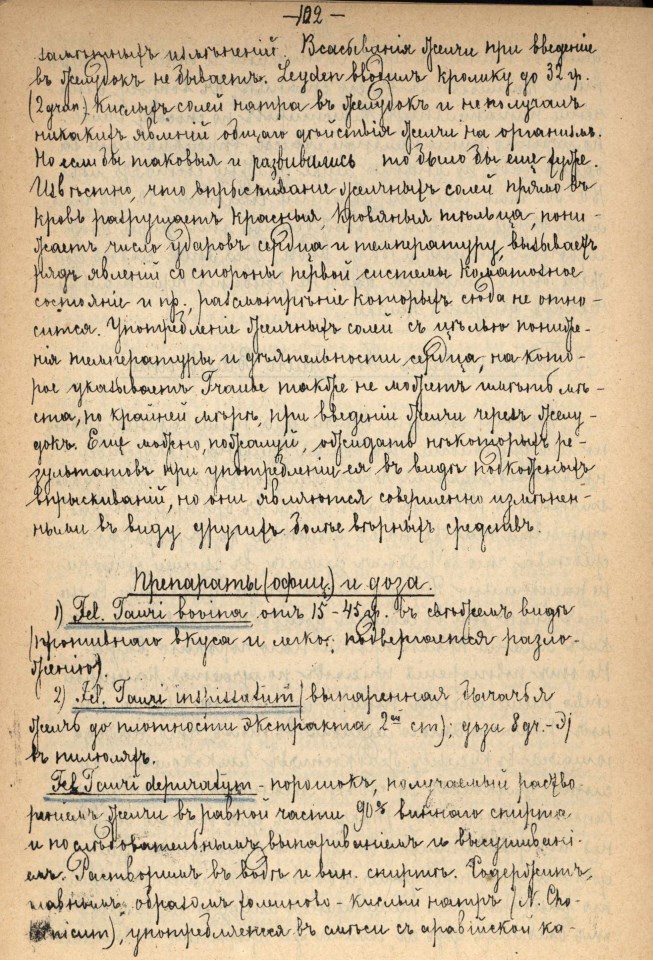 — 102 —
замѣтныхъ измѣненій. Всасыванія желчи при введеніе
въ желудокъ не бываетъ. Leyden вводилъ кролику до 32 гр.
(2 gran) кислыхъ солей натра въ желудокъ и не получалъ
никакихъ явленій общаго дѣйствія желчи на организмъ.
Но если бы таковыя и развивались то было бы еще хуже.
Извѣстно, что впрыскиваніе желчныхъ солей прямо въ
кровь разрушаетъ красныя, кровяныя тѣльца, пони-
жаетъ число ударовъ сердца и температуру, вызываетъ
рядъ явленій со стороны нервой системы коматозное
состояніе и пр., разсмотрѣніе которыхъ сюда не отно-
сится. Употребленіе желчныхъ солей съ цѣлью пониже-
нія температуры и дѣятельности сердца, на кото-
рое указываетъ Traube также не можетъ имѣть мѣ-
ста, по крайней мѣрѣ, при введеніи желчи черезъ желу-
докъ. Еще можно, пожалуй, ожидать нѣкоторыхъ ре-
зультатовъ при употребленіи ея въ видѣ подкожныхъ
впрыскиваній, но они являются совершенно
въ виду другихъ болѣе вѣрныхъ средствъ.
Препараты (офиц.) и доза.
1) Fel. Tauri bovina отъ 15 - 45 гр. въ свѣжемъ видѣ
(противнаго вкуса и легко, подвергается разло-
женію).
2) Fel. Tauri inspissatum (выпаренная бычачья
желчь до плотности экстракта 2ой ст); доза 8 gr. - Э j
въ пилюляхъ.
Fel Tauri depuratum - порошокъ, получаемый раство
реніемъ желчи въ равной части 90% виннаго спирта
и послѣдовательнымъ выпариваніемъ и высушивані-
емъ. Растворимъ въ водѣ и вин. спиртѣ. Содержитъ,
главнымъ образомъ холиново-кислый натръ (N. Cho-
употребляется въ смѣси съ аравійской ка-